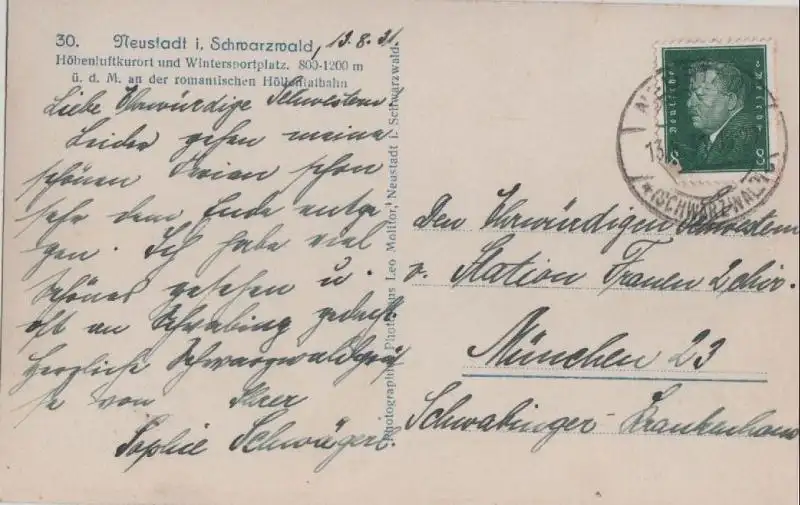 30. Neustadt i. Schwarzwald, 13.8.31
Höhenluftkurort und Wintersportplatz. 800-1200 m
ü. d. M. an der romantischen Höllentalbahn
Liebe Ehrwürdige Schwestern.
Leider gehen meine
schönen Ferien schon
sehr dem Ende entge
gen. Ich habe viel
schönes gesehen u.
oft an Schwabing gedacht.
Herzliche Schwarzwaldgrü
se von Ihrer
Sophie Schwägerl.
Photographie Photohaus Leo Molitor, Neustadt i. Schwarzwald.
Deutsches Reich
8 8
13.
(SCHWARZWALD)
Den Ehrwürdigen Schwestern
v. Station Frauen 2 chir.
München 23
Schwabinger-Krankenhaus